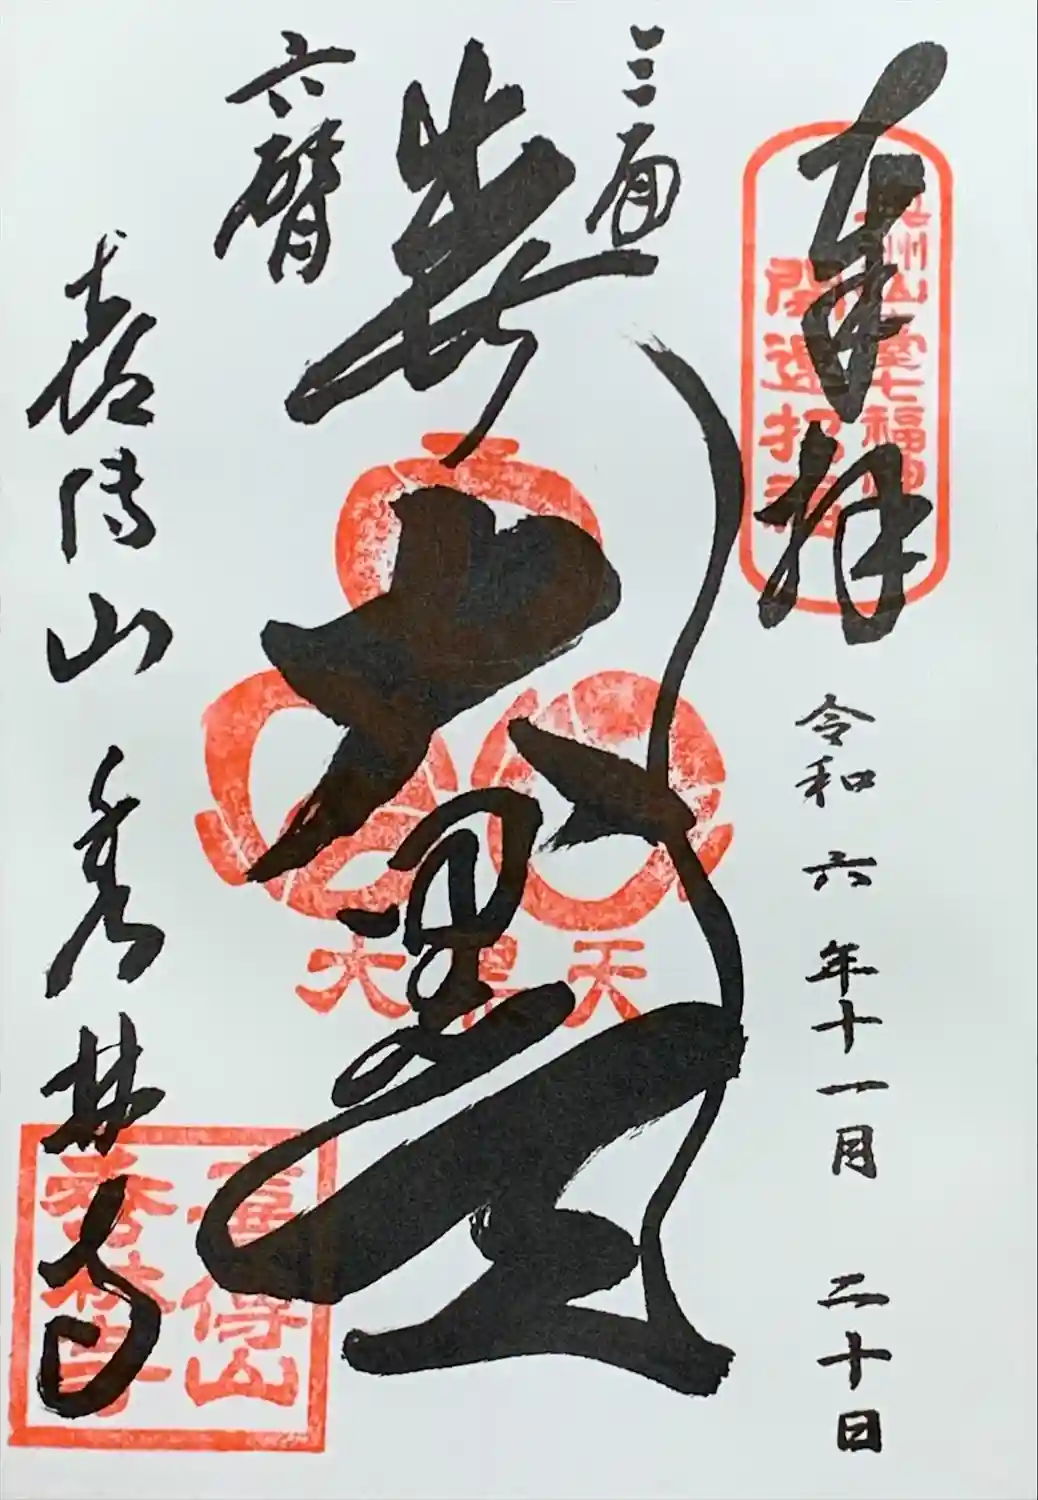 奉拝
奥州仙臺七福神
開運招福
令和六年十一月二十日
三面
六臂
大黒天
大黒天
喜傳山秀林寺
喜傳山
秀林寺